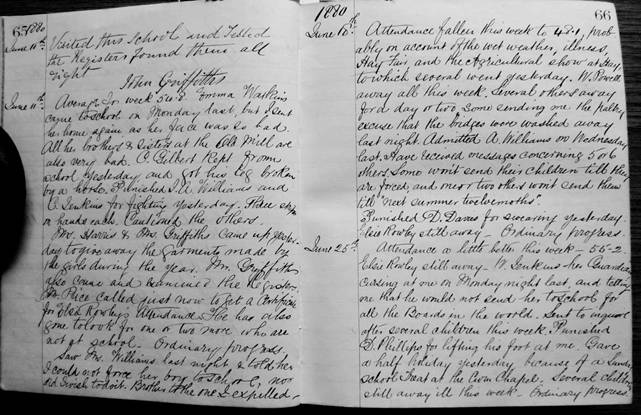 65 1880
June 11th Visited this School and Tested
the Registers found them all
right
John Griffiths
June 11th Average for week 56.2 Emma Watkins
came to school on Monday last, but I sent
her home again as her face was so bad.
All her brothers & sisters at the Old Mill are
also very bad. C. Gilbert kept from
school yesterday and got his leg broken
by a horse. Punished J. Williams and
C. Jenkins for fighting yesterday. Three strips
on hands each. Cautioned the others.
Mrs. Harris & Mrs. Griffiths came up yester-
day to give away the garments made by
the girls during the year. Mr. Griffiths
also came and examined the Registers.
Mr. Price called just now to get a Certificate
for Elsie Rowley's Attendance. He has also
gone to look for one or two more who are
not at school. Ordinary progress.
Saw Mrs. Williams last night, & told her
I could not force her boy to School, nor
did I wish to do it. Brother to the one I expelled.
1880 66
June 18th Attendance fallen this week to 48.1, prob-
ably on account of the wet weather, illness,
Hay Fair and the Agricultural show at Hay,
to which several went yesterday. W. Powell
away all this week. Several others away
for a day or two, some sending me the paltry
excuse that the bridges were washed away
last night. Admitted A. Williams on Wednesday
last. Have received messages concerning 5 or 6
others. Some won't send their children till they
are forced, and one or two others won't send them
till "next summer twelvemonths".
Punished D. Davies for swearing yesterday.
Elsie Rowley still away – Ordinary progress.
June 25th Attendance a little better this week – 55.2
Elsie Rowley still away. W. Jenkins her Guardian
cursing at me on Monday night last, and telling
me that he would not send her to school for
all the Boards in the world. Sent to inquire
after several children this week. Punished
D. Phillips for lifting his foot at me. Gave
a half holiday yesterday because of a Sunday
school Treat at the Chapel. Several children
still away ill this week. Ordinary progress.